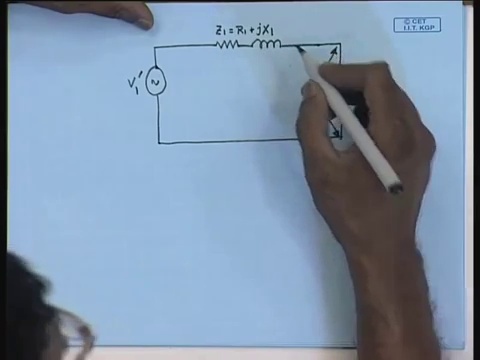 © CET
I.I.T. KGP
Z1 = R1 + jX1
V1'
~